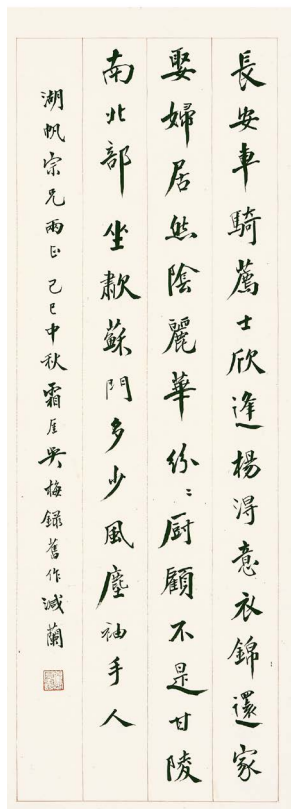 長安車騎薦士欣逢楊得意衣錦還家
娶婦居然陰麗華紛〻厨顧不是甘陵
南北部坐歗蘇門多少風塵袖手人
湖帆宗兄兩正 己巳中秋霜厓吳梅錄舊作減蘭